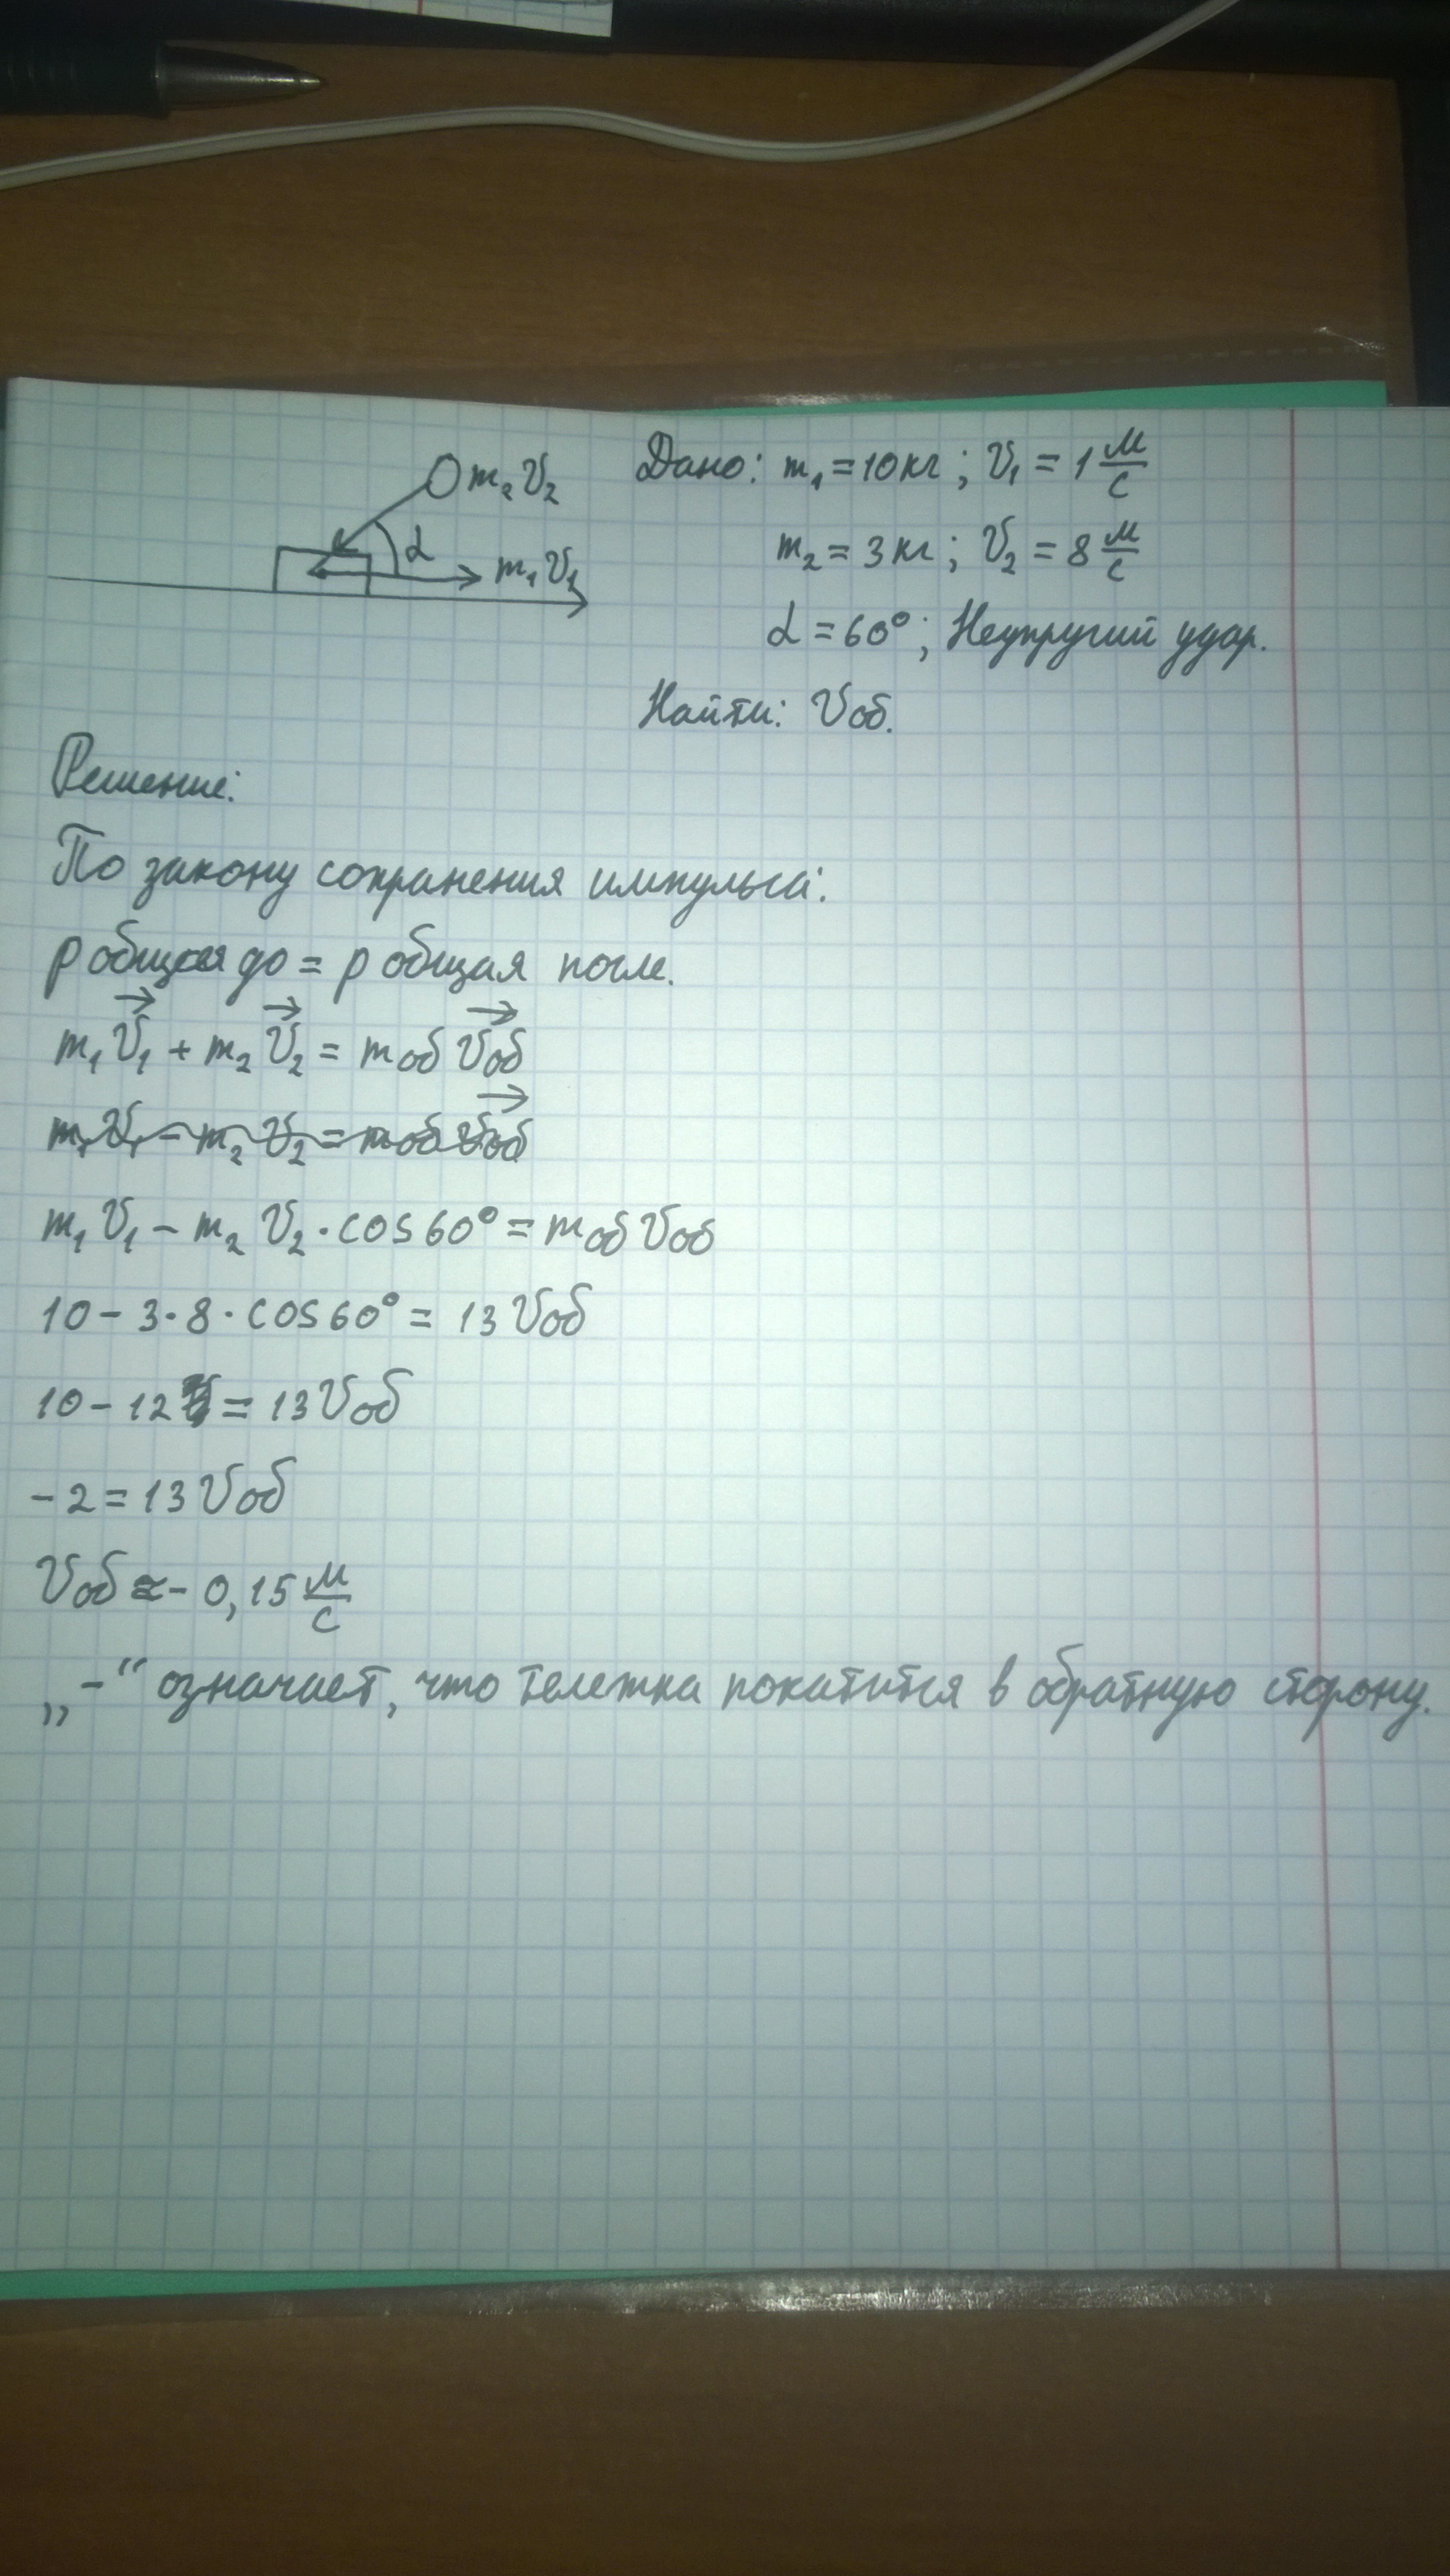 m₂ V₂
α
m₁ V₁
Дано: m₁ = 10 кг ; V₁ = 1 м/с
m₂ = 3 кг ; V₂ = 8 м/с
α = 60° ; Неупругий удар.
Найти: Vоб.
Решение:
По закону сохранения импульса:
p общая до = p общая после.
m₁V⃗₁ + m₂V⃗₂ = mоб V⃗об
m₁V₁ – m₂ V₂ = mоб V⃗об
m₁ V₁ – m₂ V₂ · cos 60° = mоб Vоб
10 – 3 · 8 · cos 60° = 13 Vоб
10 – 12 = 13 Vоб
– 2 = 13 Vоб
Vоб ≈ – 0,15 м/с
„–“ означает, что тележка покатится в обратную сторону.